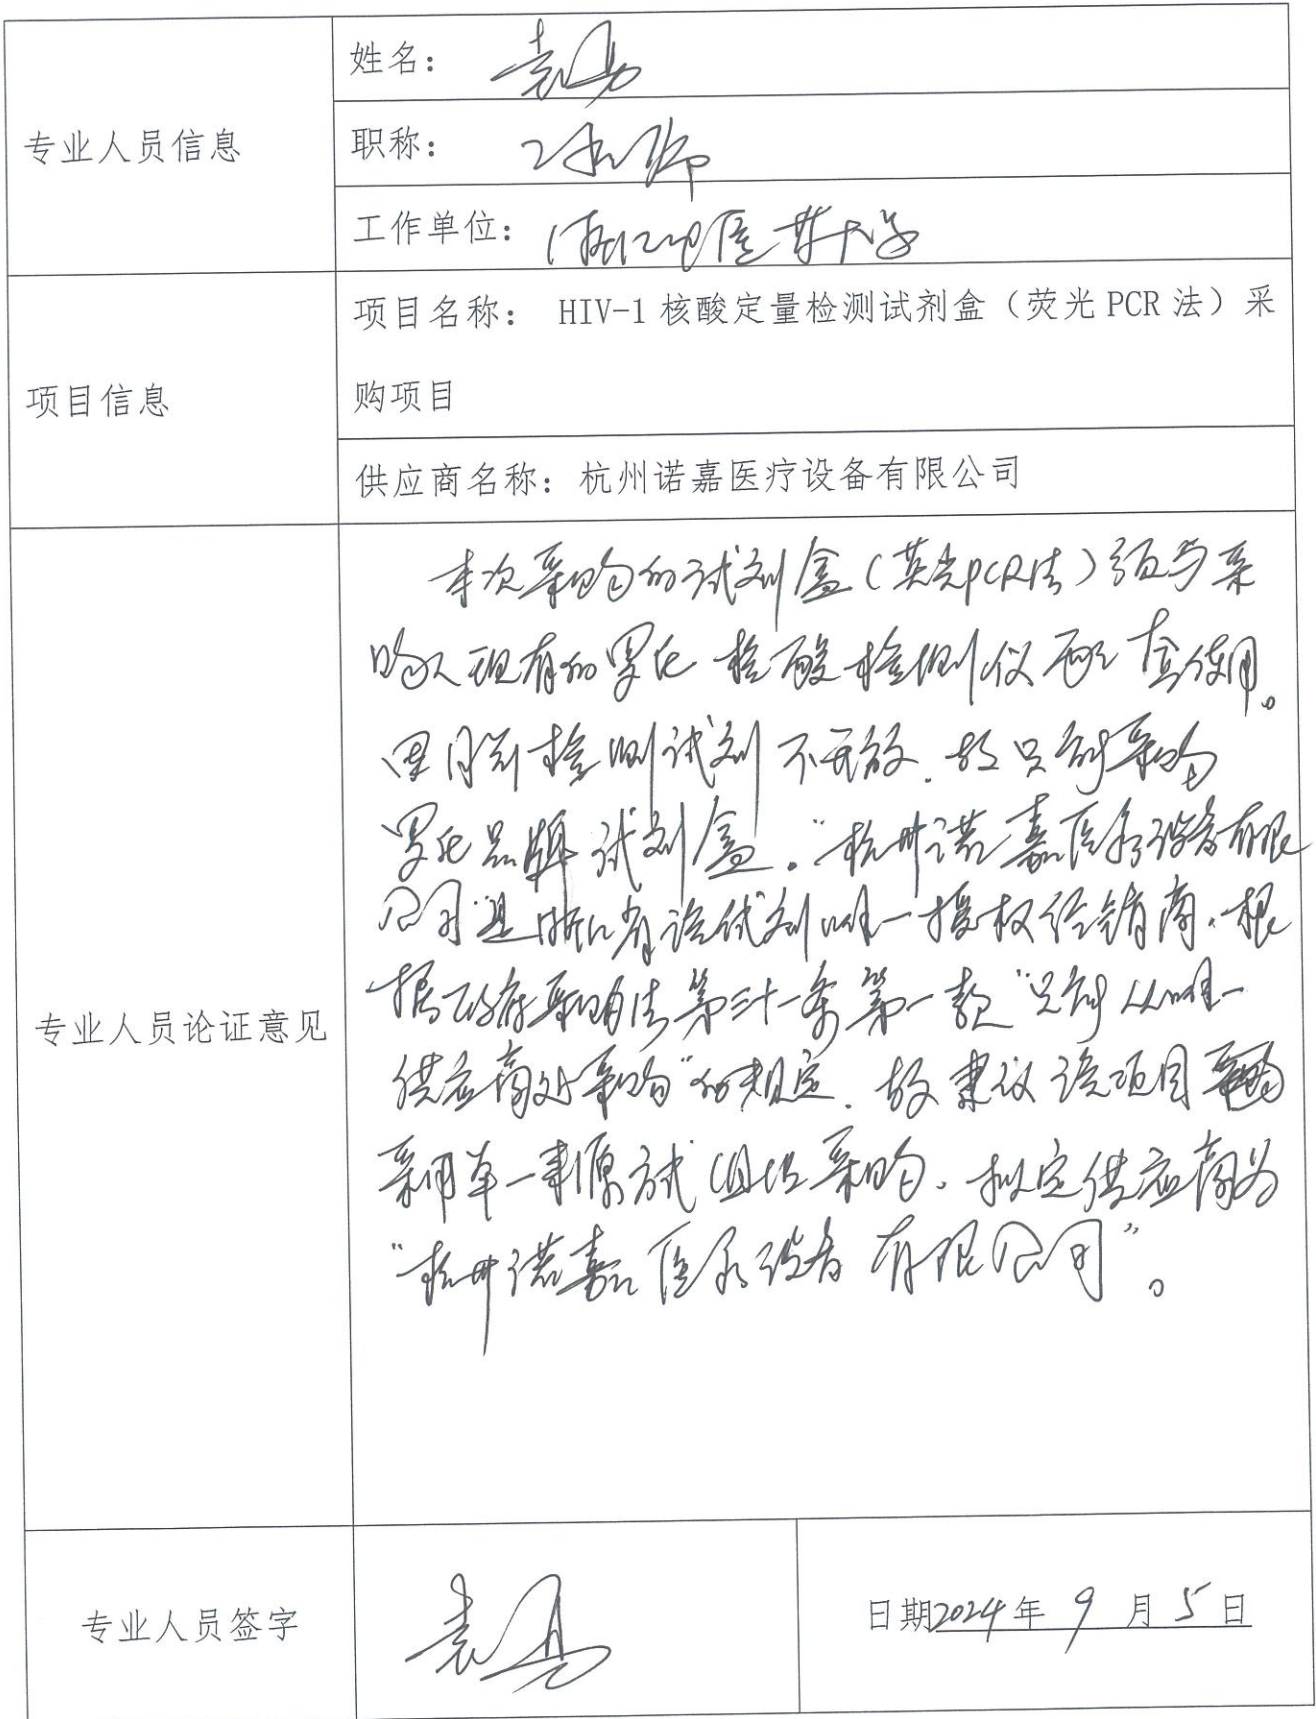 专业人员信息
姓名：袁
职称：工程师
工作单位：浙江中医药大学
项目信息
项目名称： HIV-1 核酸定量检测试剂盒（荧光 PCR 法）采
购项目
供应商名称：杭州诺嘉医疗设备有限公司
专业人员论证意见
本次采购的试剂盒（荧光PCR法）须与采
购人现有的罗氏核酸检测仪配套使用。
因 检测试剂不开放，故只能采购
罗氏品牌试剂盒。“杭州诺嘉医疗设备有限
公司”是浙江省该试剂唯一授权经销商。根
据政府采购法第三十一条第一款“只能从唯一
供应商处采购”的规定，故建议该项目
采用单一来源方式组织采购，拟定供应商为
“杭州诺嘉医疗设备有限公司”。
专业人员签字
袁
日期2024年 9 月 5 日